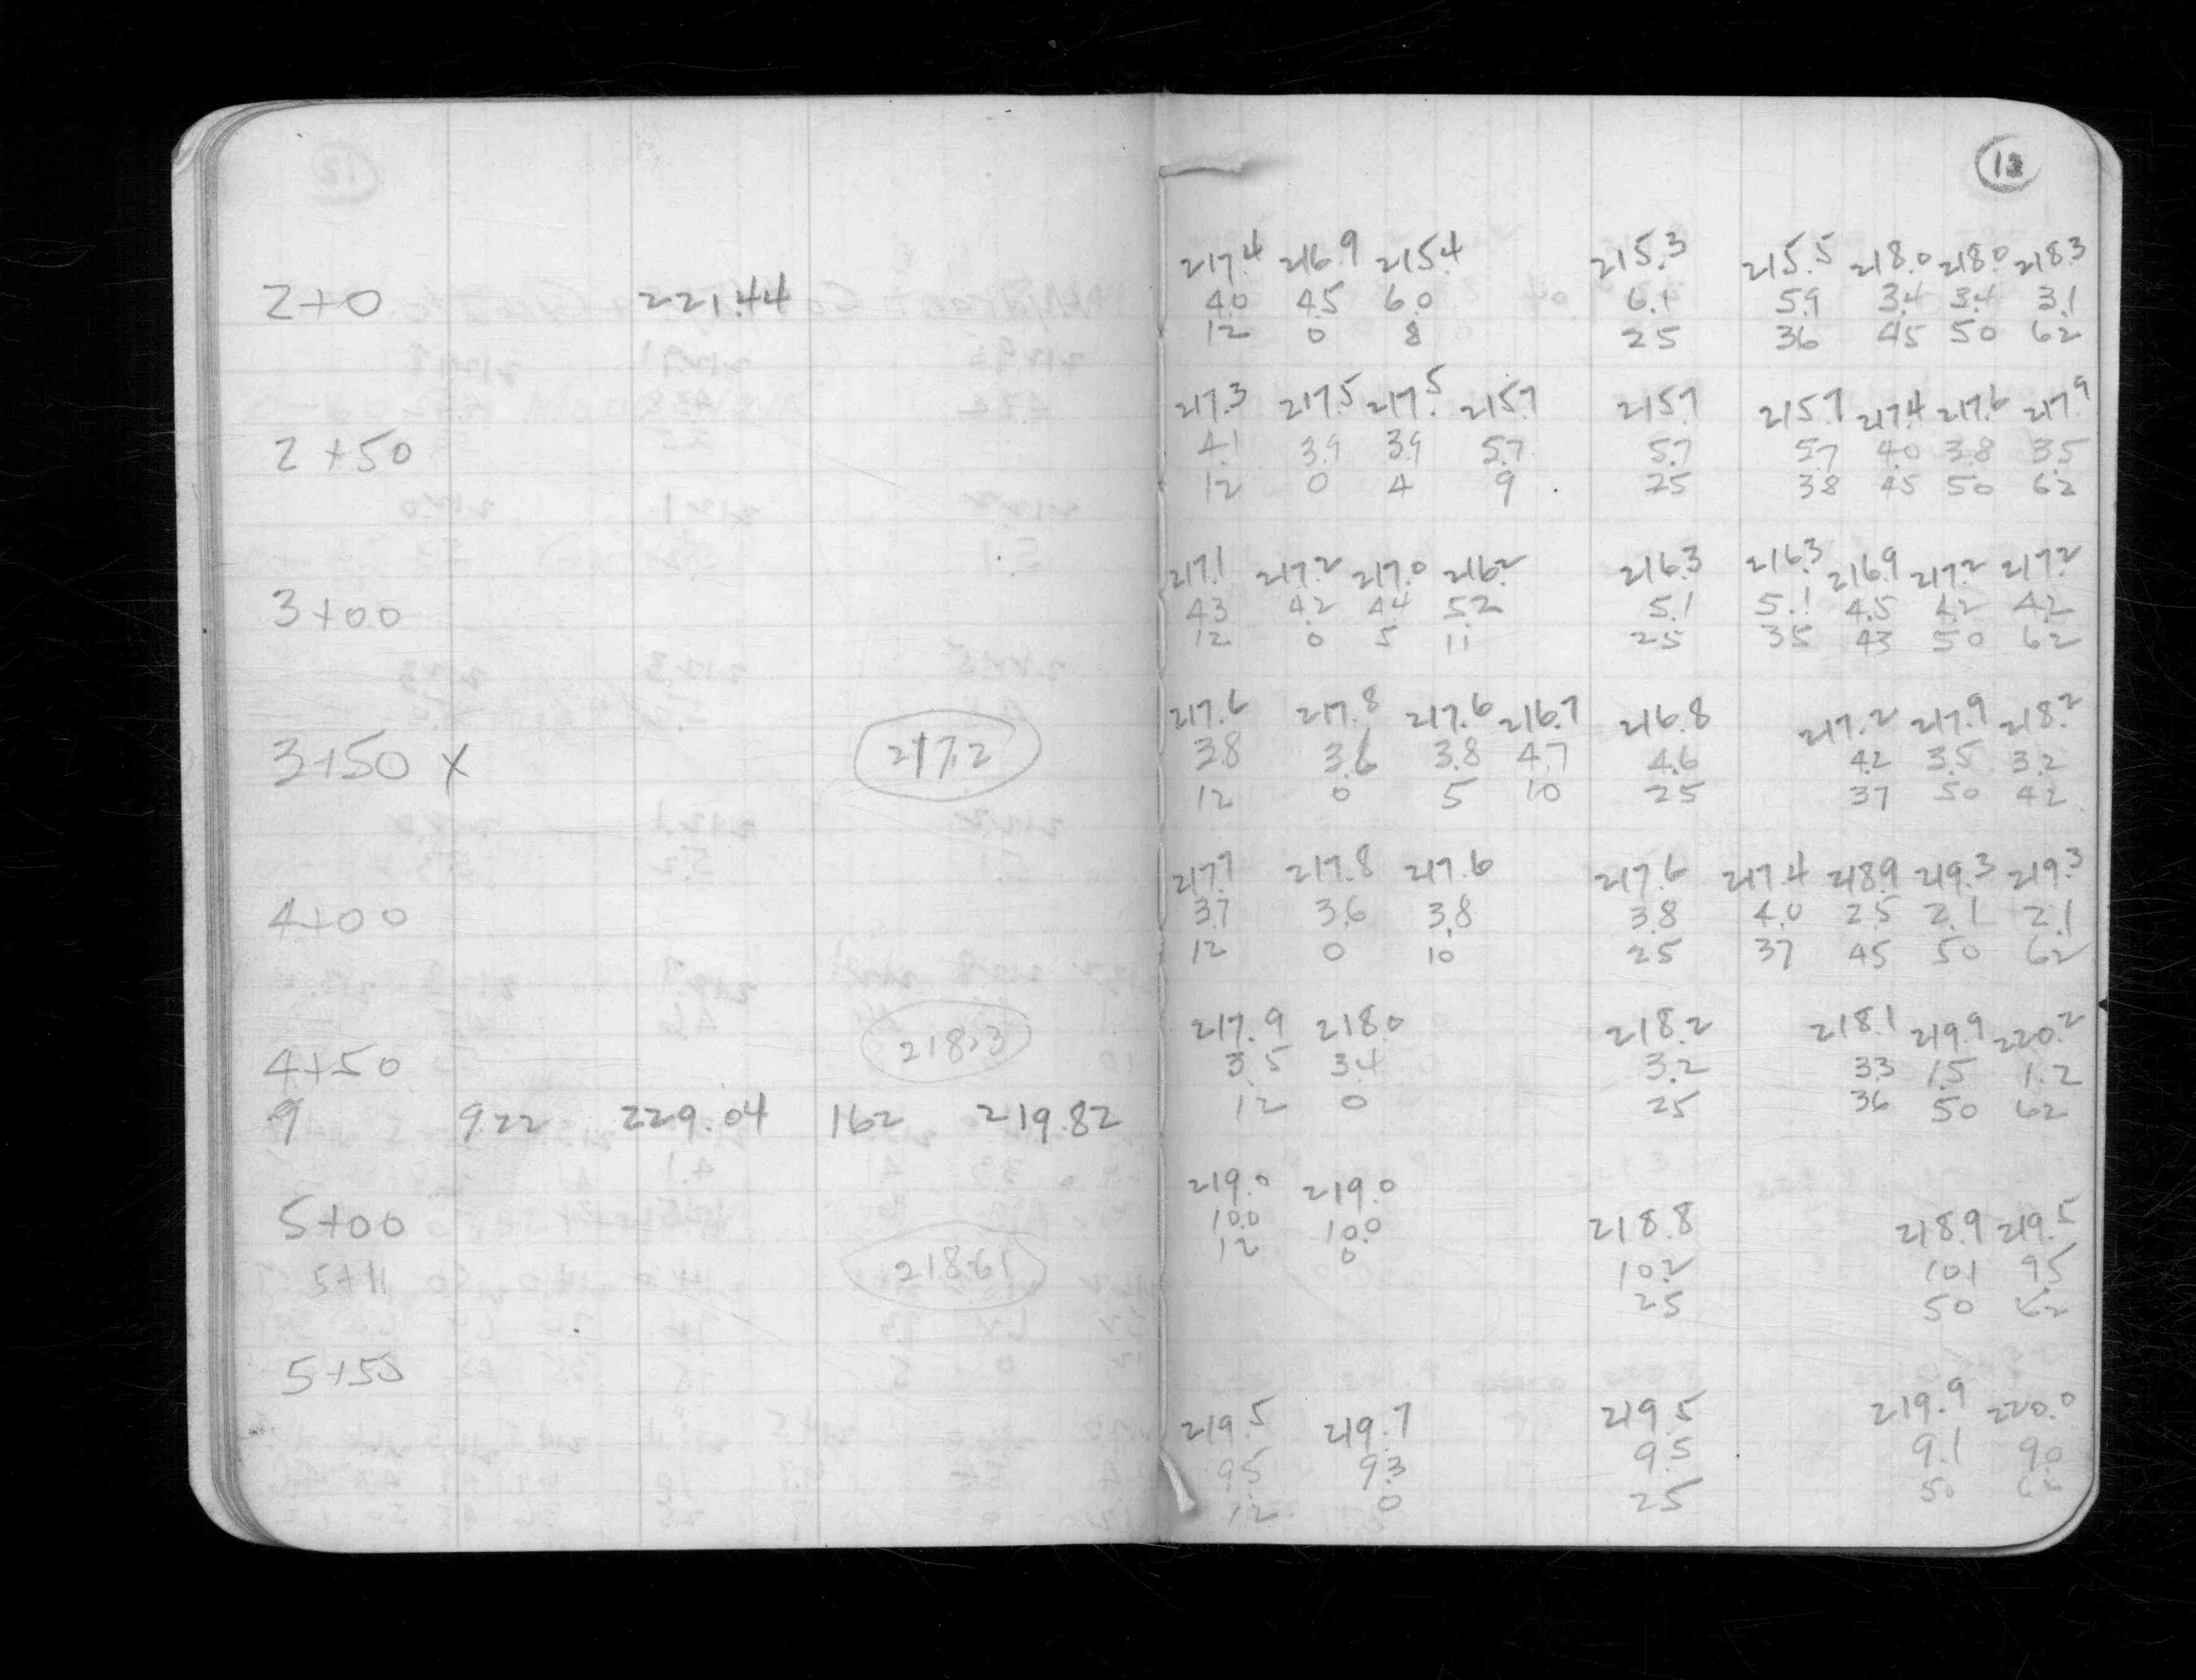 13
2+0 221.44
217.4 216.9 215.4 215.3 215.5 218.0 218.0 218.3
4.0 4.5 6.0 6.1 5.9 3.4 3.4 3.1
12 0 8 25 36 45 50 62
217.3 217.5 217.5 215.7 215.7 215.7 217.4 217.6 217.9
2+50
4.1 3.9 3.9 5.7 5.7 5.7 4.0 3.8 3.5
12 0 4 9 25 38 45 50 62
217.1 217.2 217.0 216.2 216.3 216.3 216.9 217.2 217.2
3+00
4.3 4.2 4.4 5.2 5.1 5.1 4.5 4.2 4.2
12 0 5 11 25 35 43 50 62
217.6 217.8 217.6 216.7 216.8 217.2 217.9 218.2
3+50 x 217.2
3.8 3.6 3.8 4.7 4.6 4.2 3.5 3.2
12 0 5 10 25 37 50 42
217.7 217.8 217.6 217.6 217.4 218.9 219.3 219.3
4+00
3.7 3.6 3.8 3.8 4.0 2.5 2.1 2.1
12 0 10 25 37 45 50 62
217.9 218.0 218.2 218.1 219.9 220.2
4+50 218.3
3.5 3.4 3.2 3.3 1.5 1.2
12 0 25 36 50 62
9 922 229.04 162 219.82
219.0 219.0 218.8 218.9 219.5
5+00
10.0 10.0 10.2 10.1 9.5
12 0 25 50 62
5+11 218.61
5+50
219.5 219.7 219.5 219.9 220.0
9.5 9.3 9.5 9.1 9.0
12 0 25 50